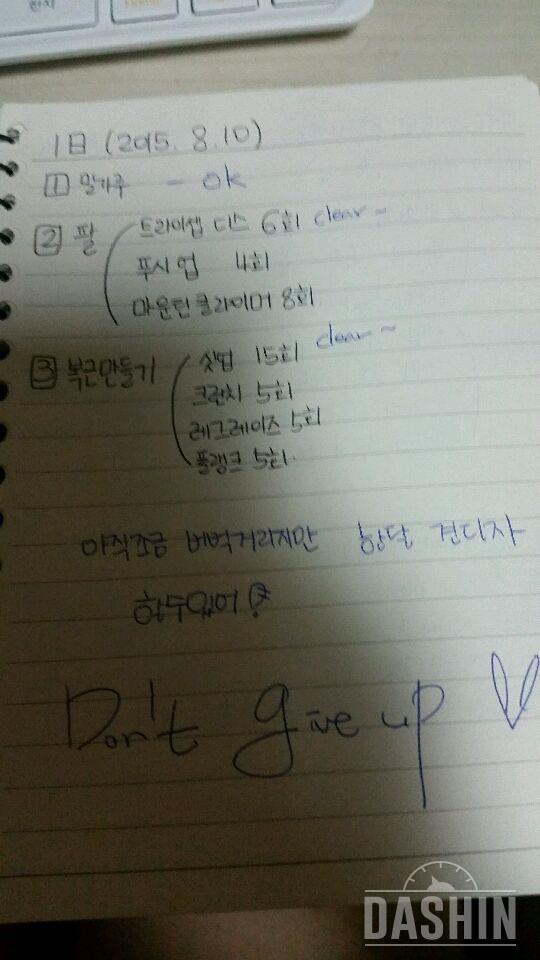 한자
1日 (2015. 8. 10)
1 밀가루 - ok
2 팔 트라이셉 디스 6회 clear~
푸시업 4회
마운틴클라이머 8회.
3 복근만들기 싯업 15회 clear~
크런치 5회
레그레이즈 5회
플랭크 5회.
아직조금 버벅거리지만 한달 견디자
할수있어!
Don't give up ♡
DASHIN